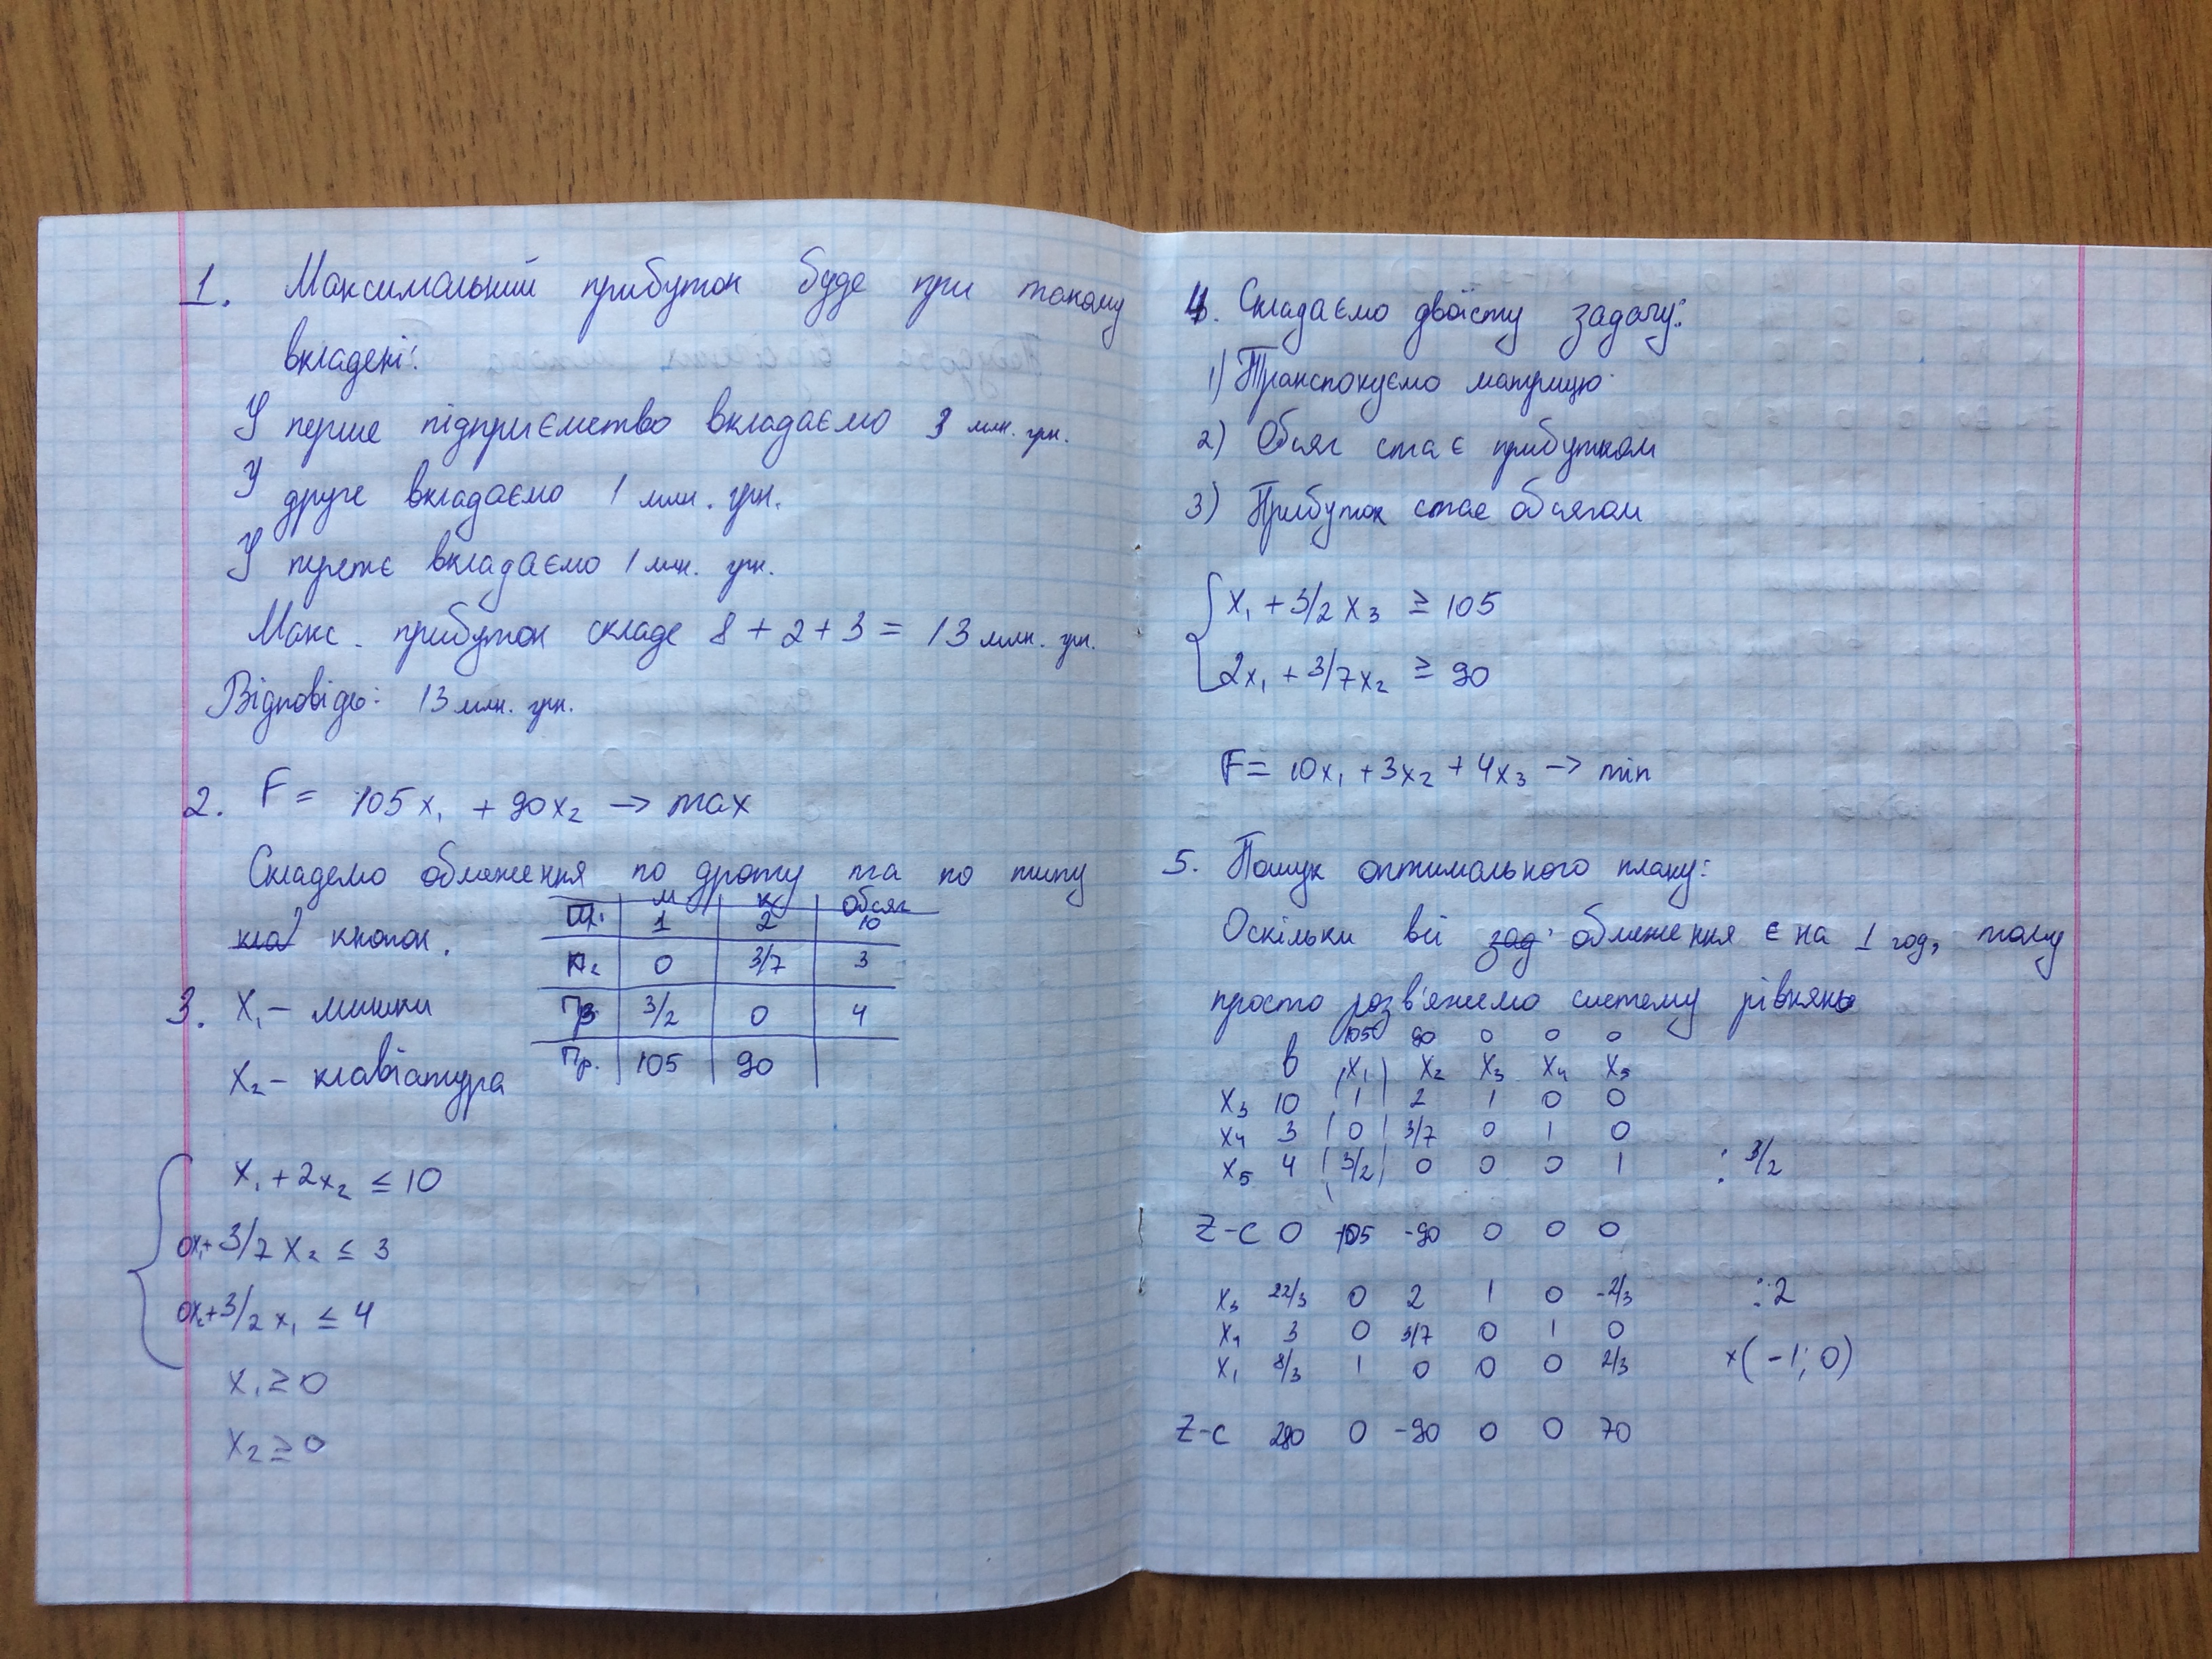 1. Максимальний прибуток буде при такому
вкладені:
У перше підприємство вкладаємо 3 млн. грн.
У друге вкладаємо 1 млн. грн.
У перетє вкладаємо 1 млн. грн.
Макс. прибуток складе 8 + 2 + 3 = 13 млн. грн.
Відповідь: 13 млн. грн.
2. F = 105x₁ + 90x₂ → max
Складемо обмеження по дроту та по типу
кнопок.
М К Обсяг
1 2 10
0 3/7 3
3/2 0 4
Пр. 105 90
3. X₁ – мишки
X₂ – клавіатура
x₁ + 2x₂ ≤ 10
0x₁+ 3/7 x₂ ≤ 3
0x₂+ 3/2 x₁ ≤ 4
x₁ ≥ 0
x₂ ≥ 0
4. Складаємо двоїсту задачу:
1) Транспонуємо матрицю
2) Обсяг стає прибутком
3) Прибуток стає обсягом
x₁ + 3/2 x₃ ≥ 105
2x₁ + 3/7x₂ ≥ 90
F = 10x₁ + 3x₂ + 4x₃ → min
5. Пошук оптимального плану:
Оскільки всі зад обмеження є на 1 год, тому
просто розв'яжемо систему рівнянь
105 90 0 0 0
в x₁ x₂ x₃ x₄ x₅
x₃ 10 1 2 1 0 0
x₄ 3 0 3/7 0 1 0
x₅ 4 3/2 0 0 0 1 : 3/2
Z-C 0 -105 -90 0 0 0
x₃ 22/3 0 2 1 0 -2/3 :2
x₄ 3 0 3/7 0 1 0
x₁ 8/3 1 0 0 0 2/3 ×(-1; 0)
Z-C 280 0 -90 0 0 70